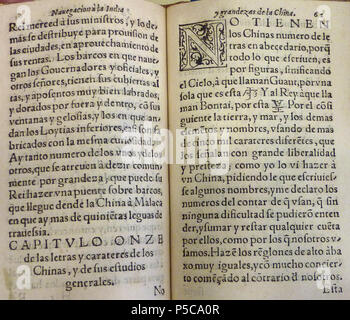 Nauegacion a la India
Rei merced a sus ministros y lo de
mas se destribuye para prouision de
las ciudades, en aprouechamiento de
sus ventas. Los barcos en que nauegan
los Gouernadores y oficiales, y
otros señores, tienen sus cubiertas
altas, y aposentos muy bien labrados,
y dorados por fuera y dentro, cō sus
ventanas y gelosias, y los en que andan
los Loytias inferiores, casi son fabricados
con la mesma curiosidad.
Ay tanto numero de los vnos y de los
otros, que se atreuia à dezir comunmente
por grandeza, que puede su
Rei hazer vna puente sobre barcos,
que llegue desde la China à Malaca
en que ay mas de quiniētas leguas de
trauesia.
CAPITVLO ONZE
de las letras y carateres de los
Chinas, y de sus estudios
generales.
No
y grandezas de la China.
NO TIENEN
los Chinas numero de letras
en abecedario, porq̃
todo lo que escriuen, es
por figuras, sinificando
el Cielo, à que llaman Guant, por vna
sola que es esta Y al Rey que llaman
Bontai, por esta Por el cōsiguiente
la tierra, y mar, y los demas
elementos, y nombres, vsando de mas
de cinco mil carateres diferētes, que
los señalan con grande liberalidad
y presteza, como yo lo vi hazer a
vn China, pidiendo le que escriuiesse
algunos nombres, y me declarò los
numeros del contar de q̃ vsan, q̃ sin
ninguna dificultad se pudieron entender,
y sumar y restar qualquier cuēta
por ellos, como por los q̃ nosotros vsamos.
Hazē los rēglones de alto abaxo
muy iguales, y cō mucho concierto
começado al cōtrario de nosotros.
Esta